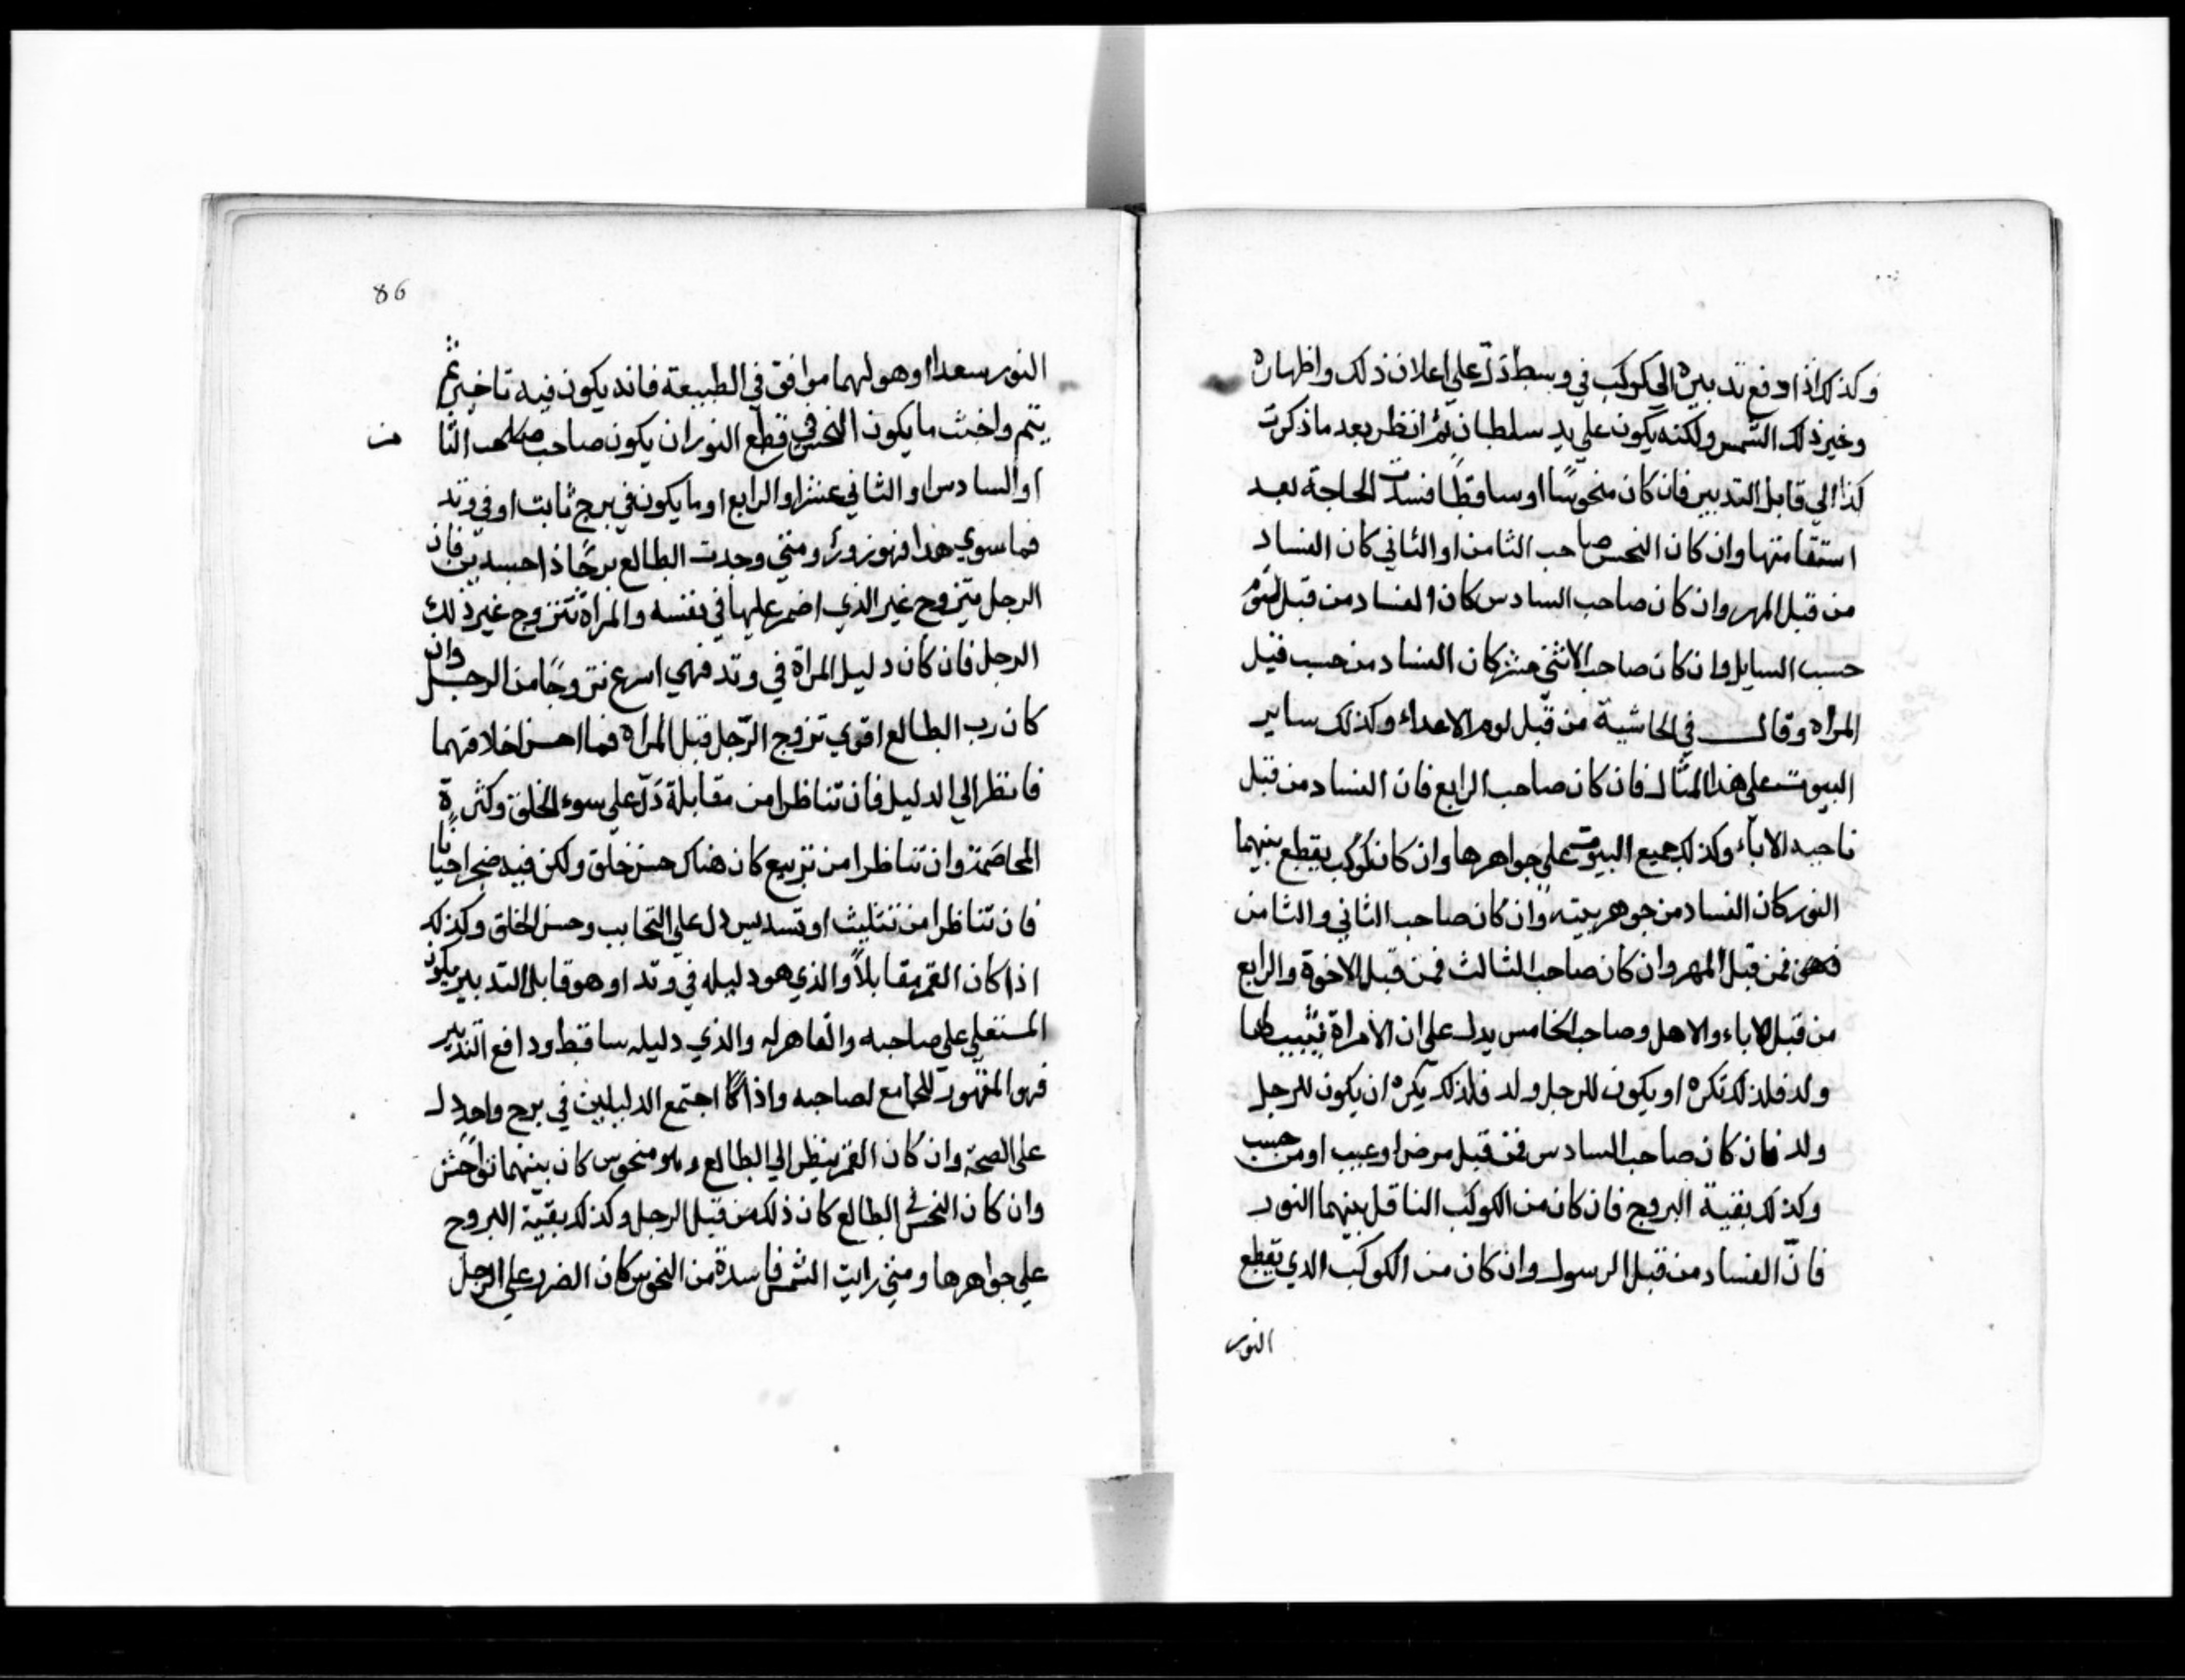 وكذلك اذا دفع تدبيره الي كوكب في وسط دل علي اعلان ذلك واظهاره
وخير ذلك الشمس ولكنه يكون علي يد سلطان ثم انظر بعد ما ذكرت
كذا الي قابل التدبير فان كان منحوسًا او ساقطًا فسدت الحاجة بعد
استقامتها وان كان النحس صاحب الثامن او الثاني كان الفساد
من قبل المهر وان كان صاحب السادس كان الفساد من قبل
حسب السايل وان كان صاحب الاثني عشر كان الفساد من حسب قبل
المراه وقال في الحاشية من قبل لوم الاعداء وكذلك ساير
البيوت علي هذا المثال فان كان صاحب الرابع فان الفساد من قبل
ناحيه الاباء وكذلك جميع البيوت علي جواهرها وان كان كوكب يقطع بينهما
النور كان الفساد من جوهر بيته وان كان صاحب الثاني والثامن
فمن قبل المهر وان كان صاحب الثالث فمن قبل الاخوة والرابع
من قبل الاباء والاهل وصاحب الخامس يدل علي ان الامراة ثيب لها
ولد فلذلك تكره او يكون للرجل ولد فلذلك يكره ان يكون للرجل
ولد فان كان صاحب السادس فمن قبل مرض او عيب او من حسب
وكذلك بقية البروج فان كان من الكوكب الناقل بينهما النور
فانّ الفساد من قبل الرسول وان كان من الكوكب الدي يقطع
النور
86
النور سعدا او هو لهما موافق في الطبيعة فانه يكون فيه تاخير ثم
يتم واخث ما يكون النحس في قطع النور ان يكون صاحب الثا
من
او السادس او الثاني عشر او الرابع او ما يكون في برج ثابت او في وتد
فما سوي هذا فهو ومتي وجدت الطالع برجًا ذا جسدين فان
الرجل يتزوج غير الذي اضمر عليها في نفسه والمراة تتزوج غير ذلك
الرجل فان كان دليل المراة في وتد فهي اسرع تزوجًا من الرجل وان
كان رب الطالع اقوي تزوج الرّجل قبل المراه فما احسن اخلاقهما
فانظر الي الدليل فان تناظرا من مقابلة دلّ علي سوء الخلق وكثرة
المخاصمة وان تناظرا من تربيع كان هناك حسن خلق ولكن فيه ضجر احيانا
فان تناظرا من تثليث او تسديس دل علي التحابب وحسن الخلق وكذلك
اذا كان القمر مقابلاً والذي هو دليله في وتد او هو قابل التدبير يكون
المستعلي علي صاحبه والقاهر له والذي دليله ساقط ودافع التدبير
فهو المقهور للجامع لصاحبه واذا اجتمع الدليلين في برج واحد دل
علي الصحة وان كان القمر ينظر الي الطالع وهو منحوس كان بينهما تواحش
وان كان النحس في الطالع كان ذلك من قبل الرجل وكذلك بقيّة البروج
علي جواهرها ومتي رايت الشمس فاسدة من النحوس كان الضرر علي الرجل